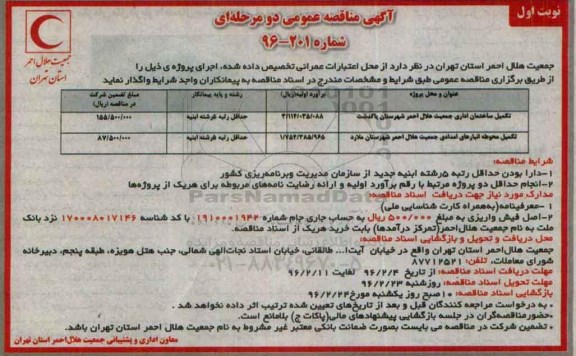 نوبت اول
آگهی مناقصه عمومی دو مرحله‌ای
شماره ۲۰۱-۹۶
جمعیت هلال احمر
استان تهران
جمعیت هلال احمر استان تهران در نظر دارد از محل اعتبارات عمرانی تخصیص داده شده، اجرای پروژه ی ذیل را
از طریق برگزاری مناقصه عمومی طبق شرایط و مشخصات مندرج در اسناد مناقصه به پیمانکاران واجد شرایط واگذار نماید
عنوان و محل پروژه | برآورد اولیه(ریال) | رشته و پایه پیمانکار | مبلغ تضمین شرکت در مناقصه (ریال)
تکمیل ساختمان اداری جمعیت هلال احمر شهرستان پاکدشت | ۳/۱۱۴/۰۳۵/۰۸۸ | حداقل رتبه ۵رشته ابنیه | ۱۵۵/۵۰۰/۰۰۰
تکمیل محوطه انبارهای امدادی جمعیت هلال احمر شهرستان ملارد | ۱/۷۵۲/۳۸۵/۹۶۵ | حداقل رتبه ۵رشته ابنیه | ۸۷/۵۰۰/۰۰۰
شرایط مناقصه:
۱-دارا بودن حداقل رتبه ۵رشته ابنیه جدید از سازمان مدیریت وبرنامه‌ریزی کشور
۲-انجام حداقل دو پروژه مرتبط با رقم برآورد اولیه و ارائه رضایت نامه‌های مربوطه برای هریک از پروژه‌ها
مدارک مورد نیاز جهت دریافت اسناد مناقصه:
۱-معرفینامه(به‌همراه کارت شناسایی ملی)
۲-اصل فیش واریزی به مبلغ ۵۰۰/۰۰۰ ریال به حساب جاری جام شماره ۱۹۱۰۰۰۱۹۴۲ با کد شناسه ۱۷۰۰۰۸۰۱۷۱۴۶ نزد بانک
ملت به نام جمعیت هلال‌احمر(تمرکز درآمدها) بابت خرید هریک از اسناد مناقصه.
محل دریافت و تحویل و بازگشایی اسناد مناقصه:
جمعیت هلال احمر استان تهران واقع در خیابان آیت‌ا... طالقانی، خیابان استاد نجات‌الهی شمالی، جنب هتل هویزه، طبقه پنجم، دبیرخانه
شورای معاملات، تلفن: ۸۷۷۱۲۵۲۱
مهلت دریافت اسناد مناقصه: از تاریخ ۹۶/۲/۴ لغایت ۹۶/۲/۱۱
مهلت تحویل اسناد مناقصه: روزشنبه ۹۶/۲/۲۳
بازگشایی اسناد مناقصه: ۱۰صبح روز یکشنبه مورخ۹۶/۲/۲۴
- به درخواست مراجعه کنندگان قبل و بعد از تاریخ‌های تعیین شده ترتیب اثر داده نخواهد شد.
-حضورمناقصه‌گران در جلسه بازگشایی پیشنهادهای مالی(پاکات ج) بلامانع است.
- تضمین شرکت در مناقصه می بایست بصورت ضمانت بانکی معتبر غیر مشروط به نام جمعیت هلال احمر استان تهران باشد.
معاون اداری و پشتیبانی جمعیت هلال‌احمر استان تهران
ParsNamadData